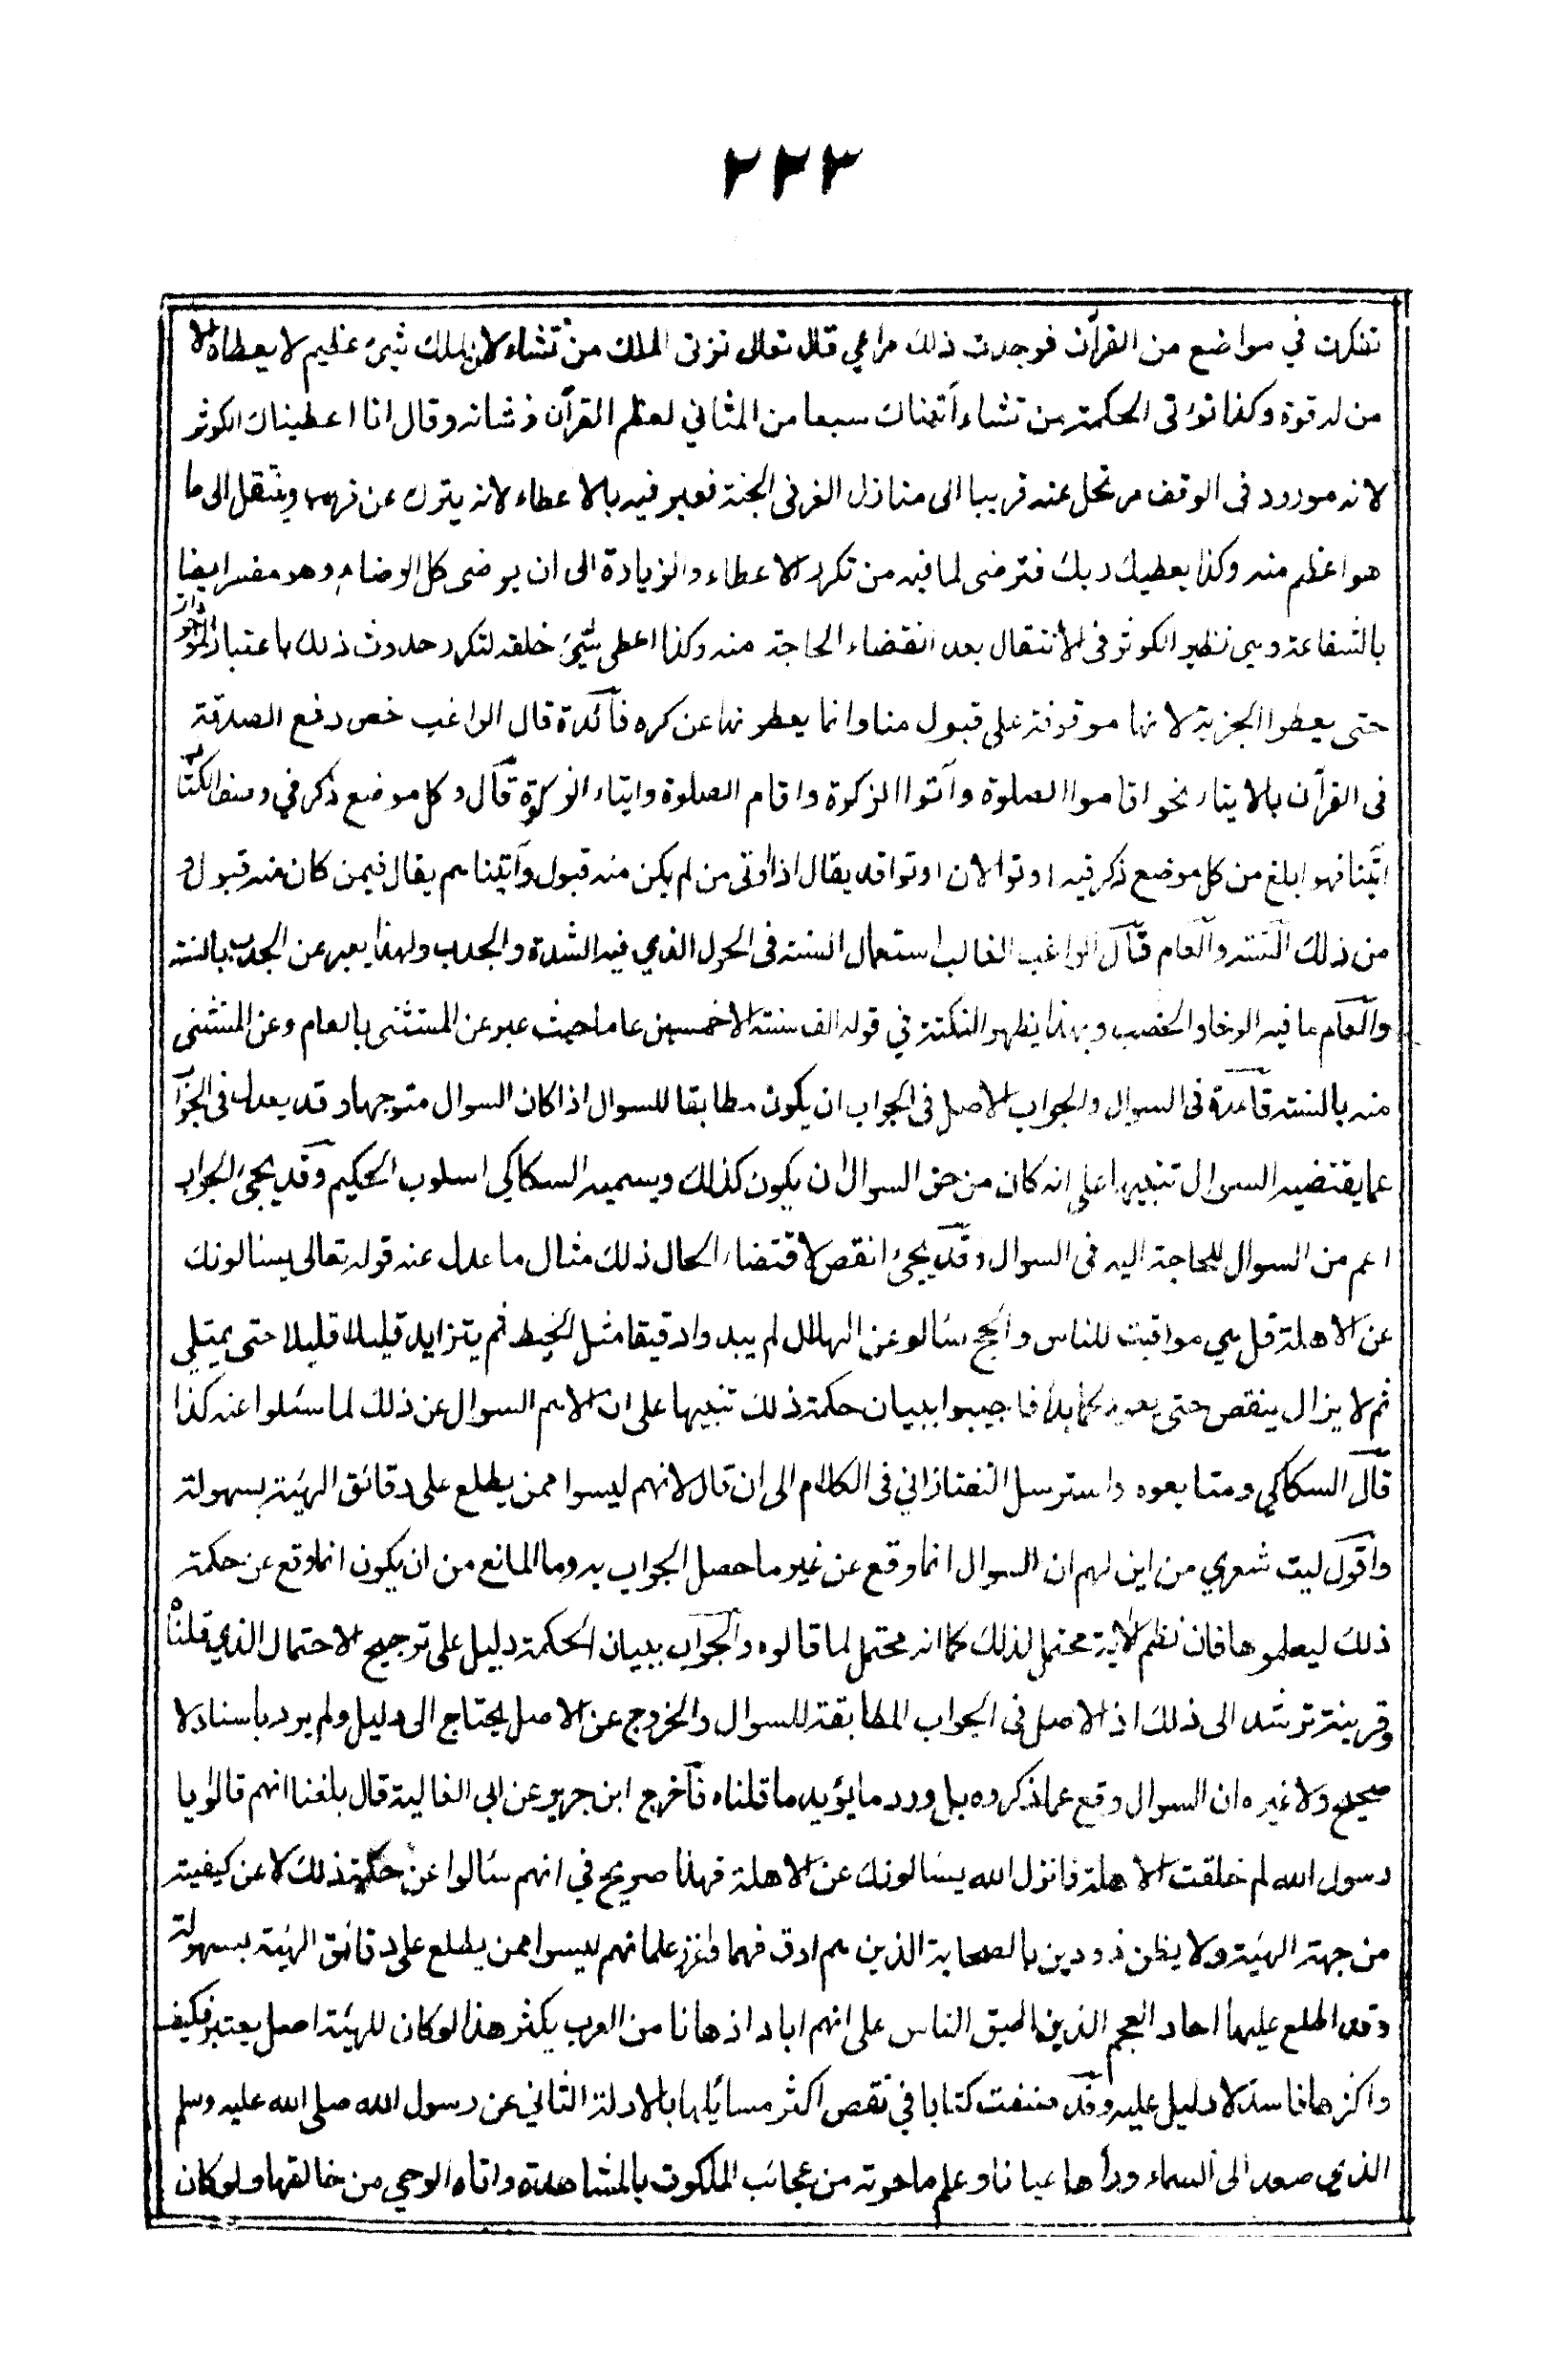 ٢٢٣
تفكرت في مواضع من القرآن فوجدت ذلك مراعي قال تعالى تؤتى الملك من تشاء لان الملك شئ عظيم لا يعطاه الا
من له قوة وكذا تؤتى الحكمة من تشاء آتيناك سبعا من المثاني لعظم القرآن وشانه وقال انا اعطيناك الكوثر
لانه مورود فى الموقف مرتحل عنه قريبا الى منازل العز فى الجنة فعبر فيه بالاعطاء لانه يترك عن قرب وينتقل الى ما
هو اعظم منه وكذا يعطيك ربك فترضى لما فيه من تكرر الاعطاء والزيادة الى ان يرضى كل الرضاء وهو مفسر ايضا
بالشفاعة وهي نظير الكوثر فى الانتقال بعد انقضاء الحاجة منه وكذا اعطى كل شئ خلقه لتكرر حدوث ذلك باعتبار الموجودات
حتى يعطوا الجزية لانها موقوفة على قبول منا وانما يعطونها عن كره فآئدة قال الراغب خص دفع الصدقة
فى القرآن بالايتاء نحو اقاموا الصلوة وآتوا الزكوة واقام الصلوة وايتاء الزكوة قال وكل موضع ذكر في وصف الكتاب
آتينا فهو ابلغ من كل موضع ذكر فيه اوتوا لان اوتوا قد يقال اذا اوتى من لم يكن منه قبول وآتيناهم يقال فيمن كان منه قبول و
من ذلك السنة والعام قال الراغب الغالب استعمال السنة فى الحول الذي فيه الشدة والجدب ولهذا يعبر عن الجدب بالسنة
والعام ما فيه الرخا والخصب وبهذا يظهر النكتة في قوله الف سنة الا خمسين عاما حيث عبر عن المستثنى بالعام وعن المستثنى
منه بالسنة قاعدة فى السوال والجواب الاصل فى الجواب ان يكون مطابقا للسوال اذا كان السوال متوجها وقد يعدل فى الجواب
عما يقتضيه السوال تنبيها على انه كان من حق السوال ان يكون كذلك ويسميه السكاكي اسلوب الحكيم وقد يجئ الجواب
اعم من السوال للحاجة اليه فى السوال وقد يجئ انقص لاقتضاء الحال ذلك مثال ما عدل عنه قوله تعالى يسئالونك
عن الاهلة قل هي مواقيت للناس والحج سئالو عن الهلال لم يبدوا دقيقا مثل الخيط ثم يتزايد قليلا قليلا حتى يمتلي
ثم لا يزال ينقص حتى يعود كما بدا فاجيبوا ببيان حكمة ذلك تنبيها على ان الاهم السوال عن ذلك لما سئلوا عنه كذا
قال السكاكي ومتابعوه واسترسل التفتازاني فى الكلام الى ان قال لانهم ليسوا ممن يطلع على دقائق الهيئة بسهولة
واقول ليت شعري من اين لهم ان السوال انما وقع عن غير ما حصل الجواب به وما المانع من ان يكون انما وقع عن حكمة
ذلك ليعلموها فان نظم الآية محتمل لذلك كما انه محتمل لما قالوه والجواب ببيان الحكمة دليل على ترجيح الاحتمال الذي قلناه
وقرينة ترشد الى ذلك اذ الاصل فى الجواب المطابقة للسوال والخروج عن الاصل يحتاج الى دليل ولم يرد باسناد لا
صحيح ولا غيره ان السوال وقع عما ذكروه بل ورد ما يؤيد ما قلناه فاخرج ابن جرير عن ابي العالية قال بلغنا انهم قالوا يا
رسول الله لم خلقت الاهلة فانزل الله يسئالونك عن الاهلة فهذا صريح في انهم سئالوا عن حكمة ذلك لا عن كيفيته
من جهة الهيئة ولا يظن ذو دين بالصحابة الذين هم ادق فهما واغزر علما انهم ليسوا ممن يطلع على دقائق الهيئة بسهولة
وقد اطلع عليها احاد العجم الذين اطبق الناس على انهم ابلد اذهانا من العرب بكثير هذا لو كان للهيئة اصل يعتبر فكيف
واكثرها فاسد لا دليل عليه وقد صنفت كتابا في نقص اكثر مسائلها بالادلة الثاني عن رسول الله صلى الله عليه وسلم
الذي صعد الى السماء ورأها عيانا وعلم ما حوته من عجائب الملكوت بالمشاهدة واتاه الوحي من خالقها ولو كان